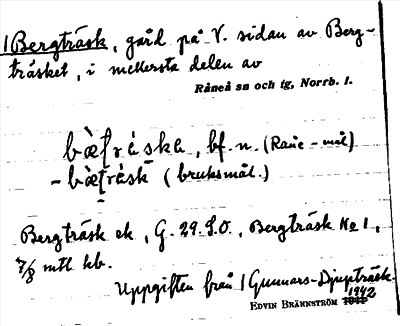 1 Bergträsk, gård på V. sidan av Berg-
träsket, i mellersta delen av
Råneå sn och tg, Norrb. l.
bæ̀ʈráska, bf. n. (Råne-mål)
- bæ̀ʈrásk (bruksmål.)
Bergträsk ek, G. 29. S.O., Bergträsk No 1,
7/8 mtl kb.
Uppgiften från 1 Gunnars-Djupträsk.
EDVIN BRÄNNSTRÖM 1942